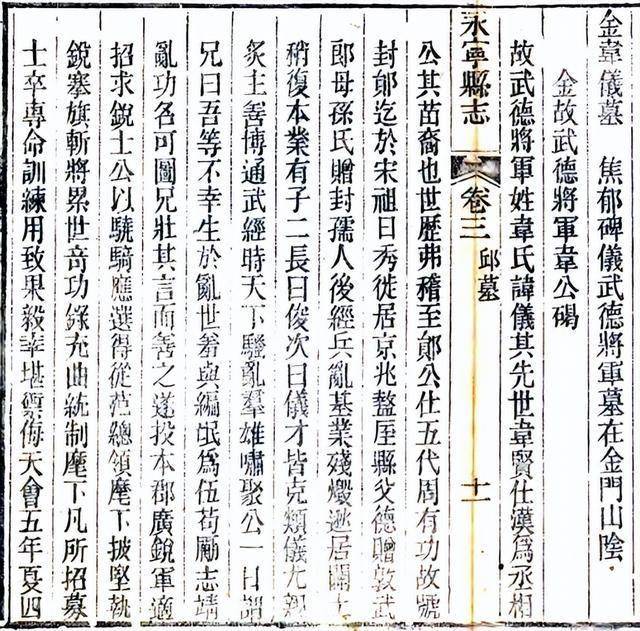 金韋儀墓　焦郁碑儀武德將軍墓在金門山陰
金故武德將軍韋公碣
故武德將軍姓韋氏諱儀其先世韋賢仕漢爲丞相
永寧縣志　卷三　邱墓　十一
公其苗裔也世歷弗稽至郎公仕五代周有功故號
封郎迄於宋祖曰秀徙居京兆盩厔縣父德贈敦武
郎母孫氏贈封孺人後經兵亂基業殘燬遯居關
稍復本業有子二長曰俊次曰儀才皆克類儀尤親
炙主善博通武經時天下騷亂羣雄嘯聚公一日謂
兄曰吾等不幸生於亂世羞與編氓爲伍苟勵志靖
亂功名可圖兄壯其言而善之遂投本郡廣銳軍適
招求銳士公以驍騎應選得從范總領麾下披堅執
銳塞旗斬將累世奇功錄充曲統制麾下凡所招募
士卒專命訓練用致果毅幸堪禦侮天會五年夏四